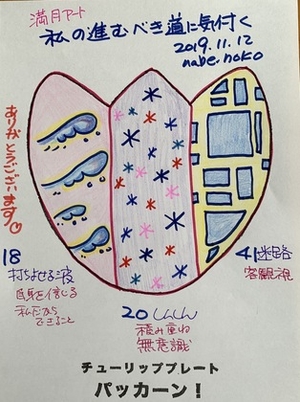 満月アート
私の進むべき道に気付く
2019.11.12
nabe.noko
ありがとうございます
18
打ちよせる波
自身を信じる
私だから
できること
20 しんしん
積み重ね
無意識
41 迷路
客観視
チューリッププレート
パッカーン!